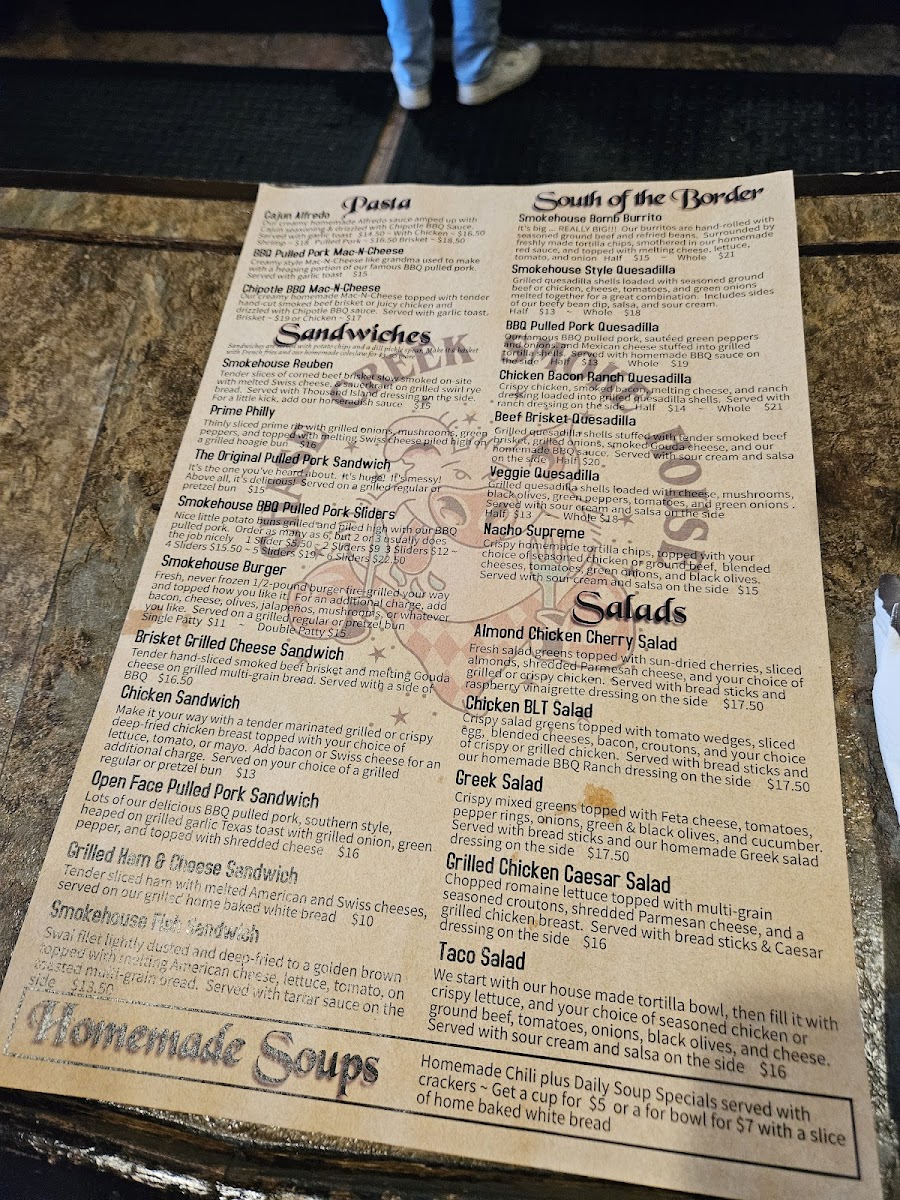 Pasta
Cajun Alfredo
Our creamy homemade Alfredo sauce amped up with
Cajun seasoning & drizzled with Chipotle BBQ Sauce.
Served with garlic toast $14.50 - with Chicken ~ $16.50
Shrimp ~ $18 Pulled Pork ~ $16.50 Brisket ~ $18.50
BBQ Pulled Pork Mac-N-Cheese
Creamy style Mac-N-Cheese like grandma used to make
with a heaping portion of our famous BBQ pulled pork.
Served with garlic toast $15
Chipotle BBQ Mac-N-Cheese
Our creamy homemade Mac-N-Cheese topped with tender
hand-cut smoked beef brisket or juicy chicken and
drizzled with Chipotle BBQ sauce. Served with garlic toast.
Brisket ~ $19 or Chicken ~ $17
Sandwiches
Sandwiches are served with potato chips and a dill pickle spear. Make it a basket
with French fries and our homemade coleslaw for
Smokehouse Reuben
Tender slices of corned beef brisket slow smoked on-site
with melted Swiss cheese, & sauerkraut on grilled swirl rye
bread. Served with Thousand Island dressing on the side.
For a little kick, add our horseradish sauce $15
Prime Philly
Thinly sliced prime rib with grilled onions, mushrooms, green
peppers, and topped with melting Swiss cheese piled high on
a grilled hoagie bun $16
The Original Pulled Pork Sandwich
It's the one you've heard about. It's huge! It's messy!
Above all, it's delicious! Served on a grilled regular or
pretzel bun $15
Smokehouse BBQ Pulled Pork Sliders
Nice little potato buns grilled and piled high with our BBQ
pulled pork. Order as many as 6, but 2 or 3 usually does
the job nicely 1 Slider $5.50 ~ 2 Sliders $9 3 Sliders $12 ~
4 Sliders $15.50 ~ 5 Sliders $19 ~ 6 Sliders $22.50
Smokehouse Burger
Fresh, never frozen 1/2-pound burger fire-grilled your way
and topped how you like it For an additional charge, add
bacon, cheese, olives, jalapenos, mushrooms, or whatever
you like. Served on a grilled regular or pretzel bun
Single Patty $11 ~ Double Patty $15
Brisket Grilled Cheese Sandwich
Tender hand-sliced smoked beef brisket and melting Gouda
cheese on grilled multi-grain bread. Served with a side of
BBQ $16.50
Chicken Sandwich
Make it your way with a tender marinated grilled or crispy
deep-fried chicken breast topped with your choice of
lettuce, tomato, or mayo. Add bacon or Swiss cheese for an
additional charge. Served on your choice of a grilled
regular or pretzel bun $13
Open Face Pulled Pork Sandwich
Lots of our delicious BBQ pulled pork, southern style,
heaped on grilled garlic Texas toast with grilled onion, green
pepper, and topped with shredded cheese $16
Grilled Ham & Cheese Sandwich
Tender sliced ham with melted American and Swiss cheeses,
served on our grilled home baked white bread $10
Smokehouse Fish Sandwich
Swai filet lightly dusted and deep-fried to a golden brown
topped with melting American cheese, lettuce, tomato, on
toasted multi-grain bread. Served with tartar sauce on the
side $13.50
South of the Border
Smokehouse Bomb Burrito
It's big ... REALLY BIG!!! Our burritos are hand-rolled with
seasoned ground beef and refried beans. Surrounded by
freshly made tortilla chips, smothered in our homemade
red sauce, and topped with melting cheese, lettuce,
tomato, and onion Half $15 ~ Whole $21
Smokehouse Style Quesadilla
Grilled quesadilla shells loaded with seasoned ground
beef or chicken, cheese, tomatoes, and green onions
melted together for a great combination. Includes sides
of our beefy bean dip, salsa, and sour cream.
Half $13 ~ Whole $18
BBQ Pulled Pork Quesadilla
Our famous BBQ pulled pork, sautéed green peppers
and onions, and Mexican cheese stuffed into grilled
tortilla shells. Served with homemade BBQ sauce on
the side Half $13 ~ Whole $19
Chicken Bacon Ranch Quesadilla
Crispy chicken, smoked bacon, melting cheese, and ranch
dressing loaded into grilled quesadilla shells. Served with
ranch dressing on the side Half $14 ~ Whole $21
Beef Brisket Quesadilla
Grilled quesadilla shells stuffed with tender smoked beef
brisket, grilled onions, smoked Gouda cheese, and our
homemade BBQ sauce. Served with sour cream and salsa
on the side Half $20
Veggie Quesadilla
Grilled quesadilla shells loaded with cheese, mushrooms,
black olives, green peppers, tomatoes, and green onions .
Served with sour cream and salsa on the side
Half $13 ~ Whole $18
Nacho Supreme
Crispy homemade tortilla chips, topped with your
choice of seasoned chicken or ground beef, blended
cheeses, tomatoes, green onions, and black olives.
Served with sour cream and salsa on the side $15
Salads
Almond Chicken Cherry Salad
Fresh salad greens topped with sun-dried cherries, sliced
almonds, shredded Parmesan cheese, and your choice of
grilled or crispy chicken. Served with bread sticks and
raspberry vinaigrette dressing on the side $17.50
Chicken BLT Salad
Crispy salad greens topped with tomato wedges, sliced
egg, blended cheeses, bacon, croutons, and your choice
of crispy or grilled chicken. Served with bread sticks and
our homemade BBQ Ranch dressing on the side $17.50
Greek Salad
Crispy mixed greens topped with Feta cheese, tomatoes,
pepper rings, onions, green & black olives, and cucumber.
Served with bread sticks and our homemade Greek salad
dressing on the side $17.50
Grilled Chicken Caesar Salad
Chopped romaine lettuce topped with multi-grain
seasoned croutons, shredded Parmesan cheese, and a
grilled chicken breast. Served with bread sticks & Caesar
dressing on the side $16
Taco Salad
We start with our house made tortilla bowl, then fill it with
crispy lettuce, and your choice of seasoned chicken or
ground beef, tomatoes, onions, black olives, and cheese.
Served with sour cream and salsa on the side $16
Homemade Soups
Homemade Chili plus Daily Soup Specials served with
crackers ~ Get a cup for $5 or a for bowl for $7 with a slice
of home baked white bread
CREEK SMOKE HOUSE